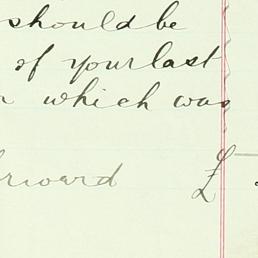 should be
of your last
which was
£